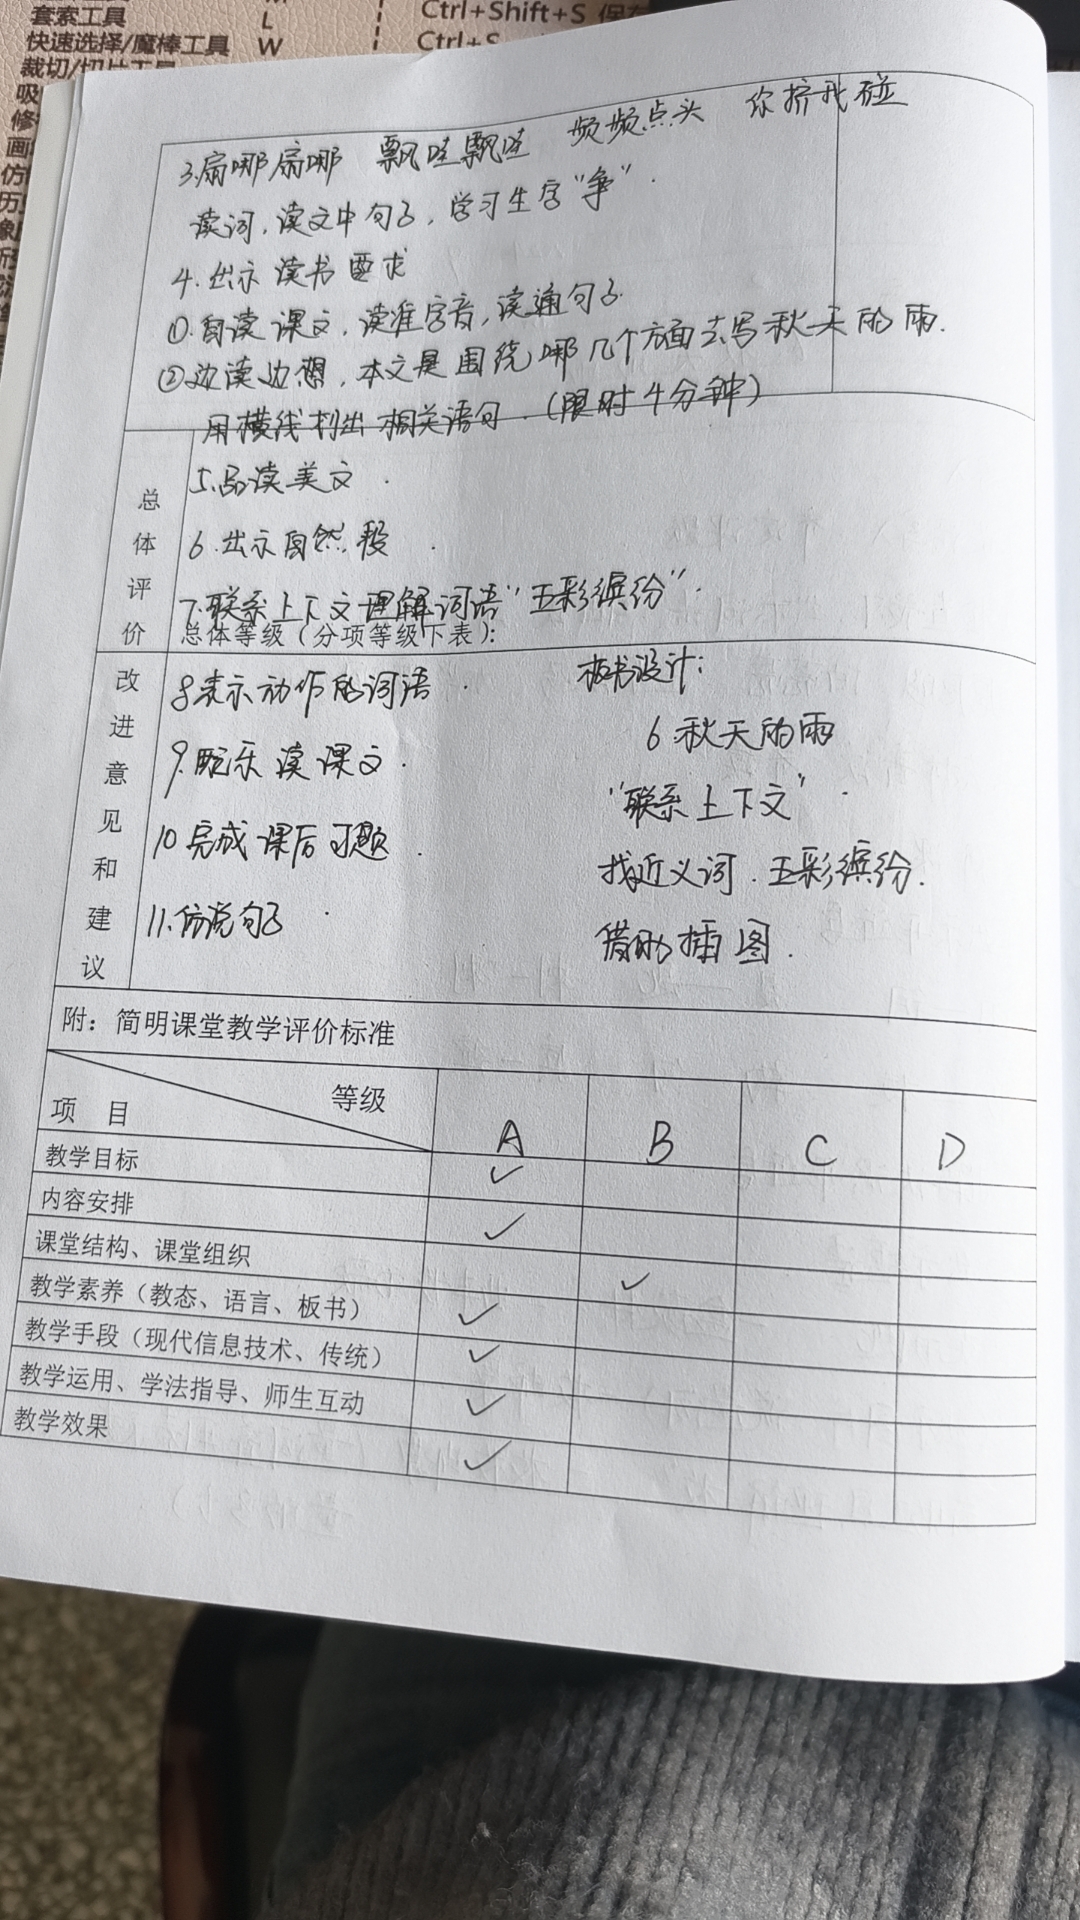 套索工具 L
快速选择/魔棒工具 W
裁切/切片工具
Ctrl+Shift+S 保存
Ctrl+S
3.扇哪扇哪 飘哇飘哇 频频点头 你挤我碰
读词,读文中句子,学习生字"争".
4.出示读书要求
①.自读课文,读准字音,读通句子.
②边读边想,本文是围绕哪几个方面去写秋天的雨.
用横线划出相关语句.(限时4分钟)
总体评价
5.品读美文.
6.出示自然段.
7.联系上下文理解词语"五彩缤纷".
总体等级(分项等级下表):
改进意见和建议
8表示动作的词语.
9.配乐读课文.
10完成课后习题.
11.仿说句子.
板书设计:
6.秋天的雨
"联系上下文".
找近义词.五彩缤纷.
借助插图.
附:简明课堂教学评价标准
项 目 等级 A B C D
教学目标 ✓
内容安排 ✓
课堂结构、课堂组织 ✓
教学素养(教态、语言、板书) ✓
教学手段(现代信息技术、传统) ✓
教学运用、学法指导、师生互动 ✓
教学效果 ✓